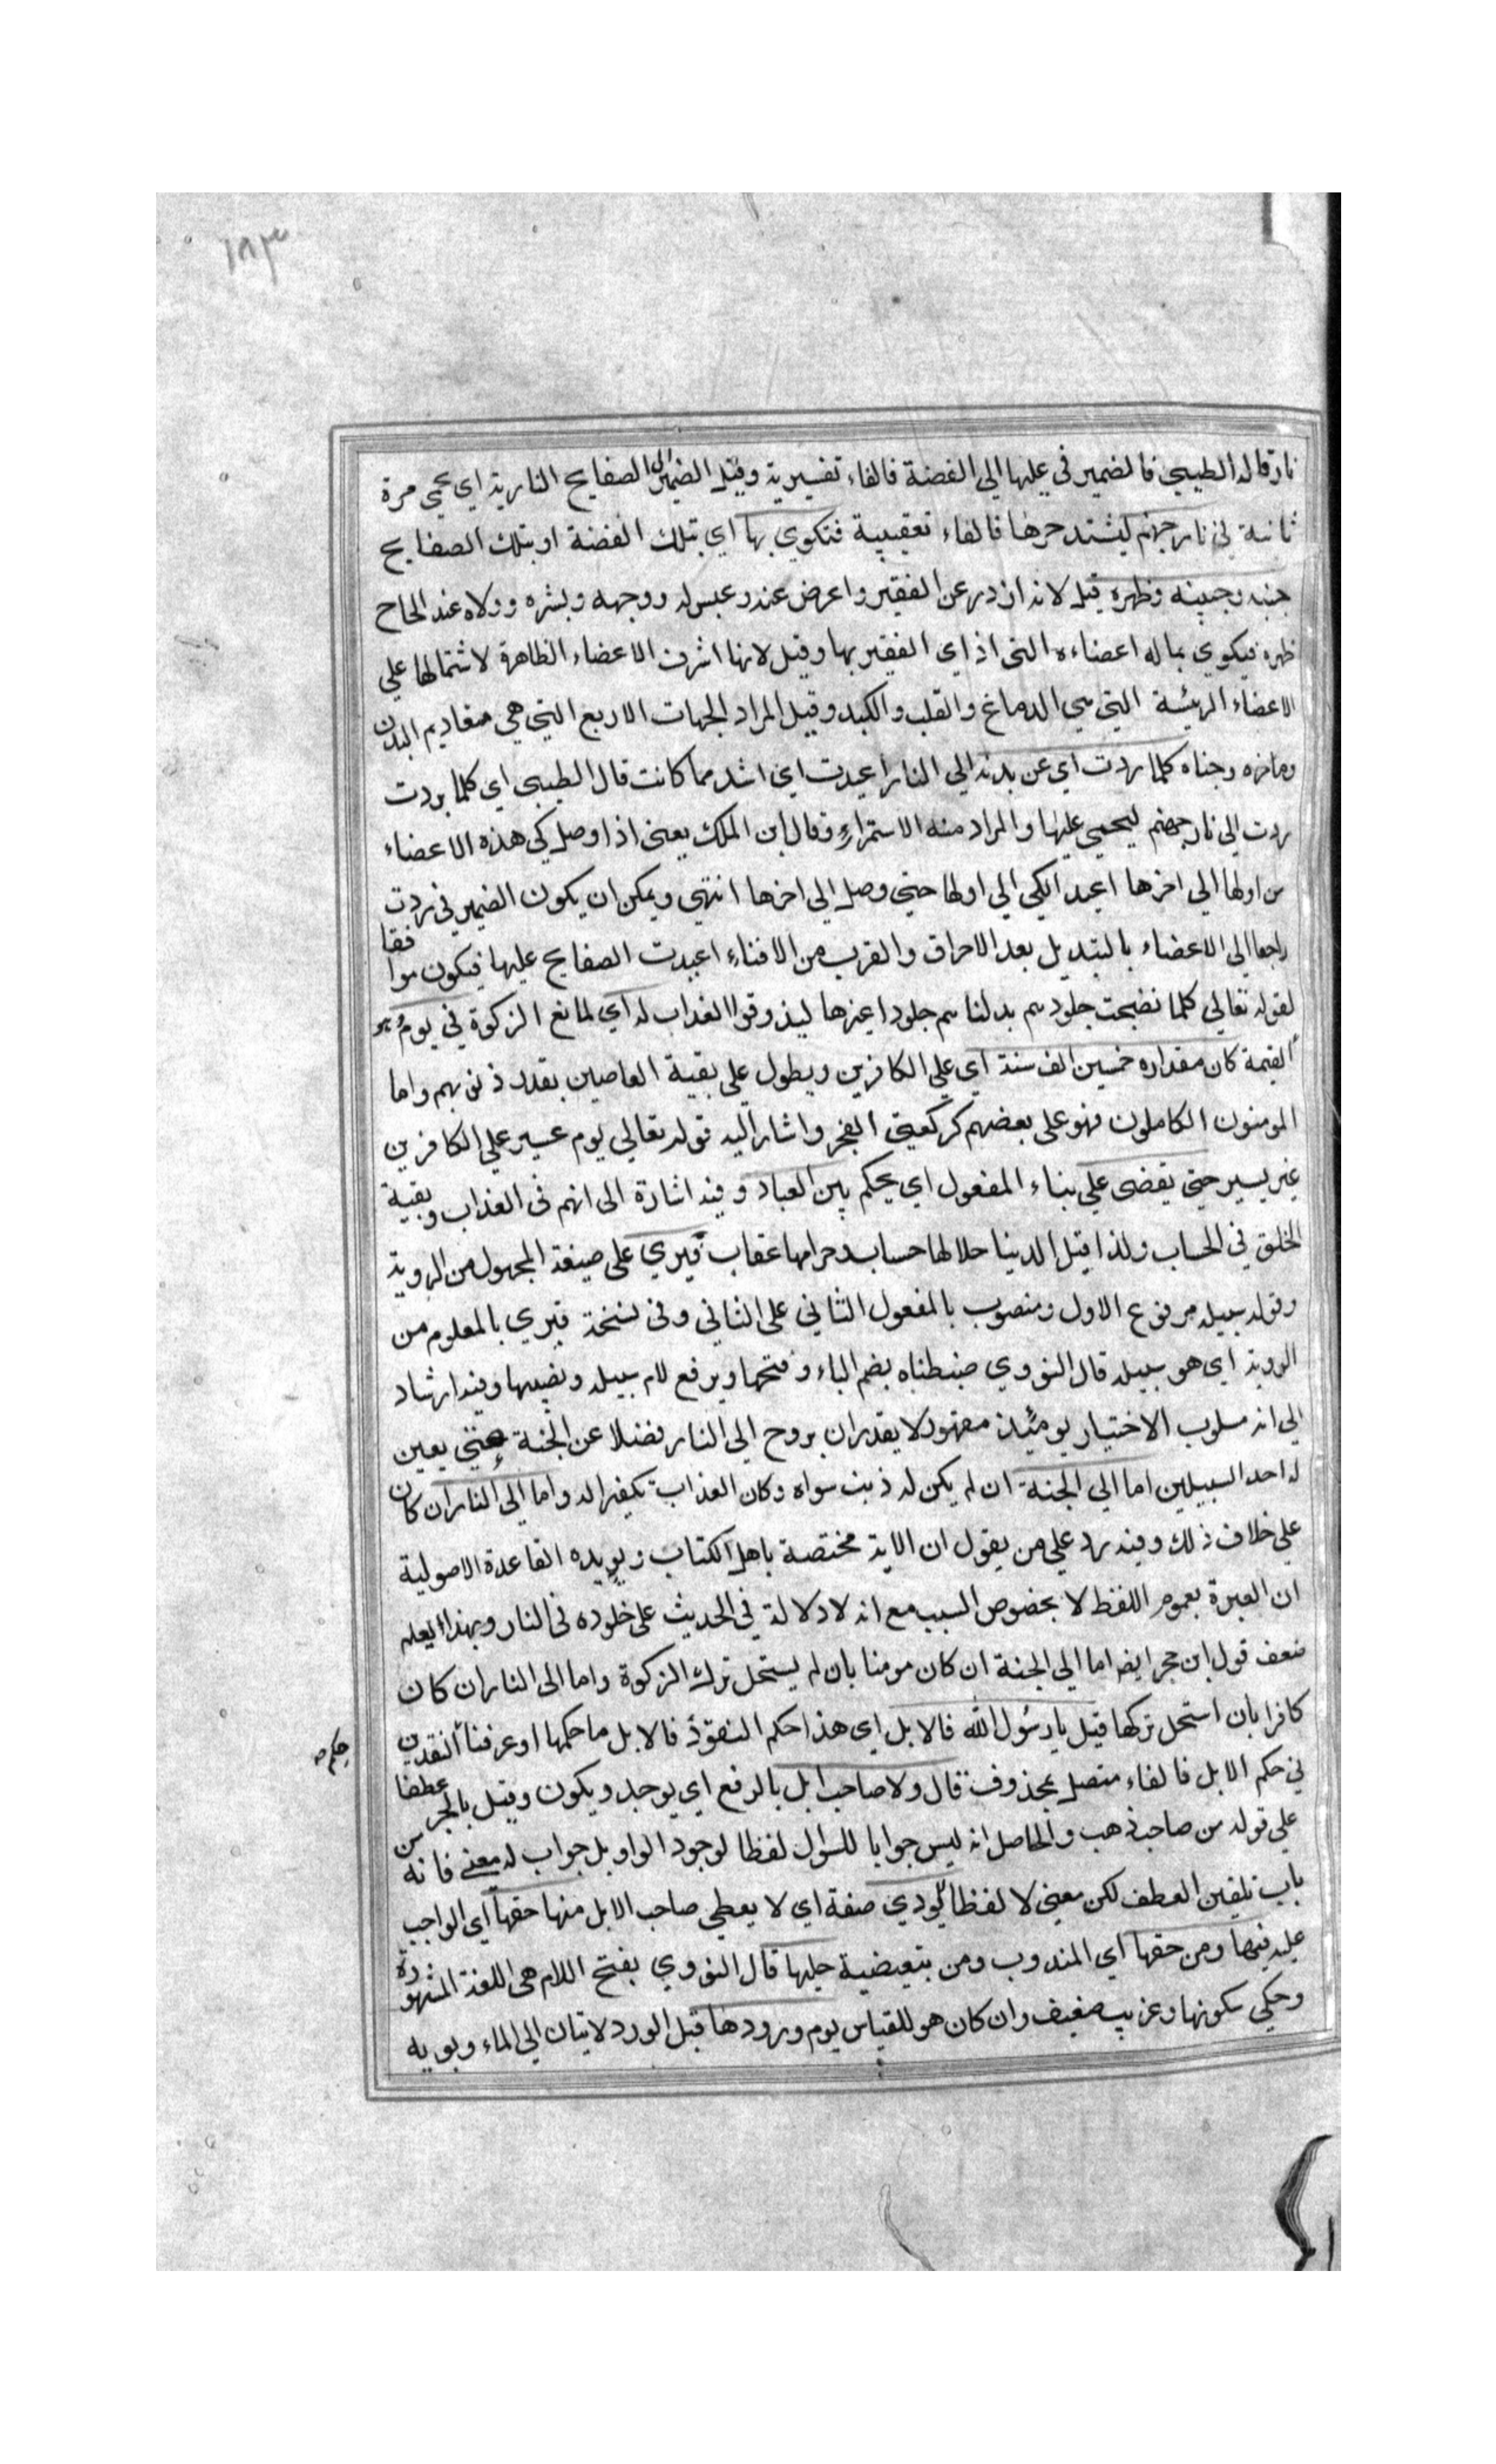 ١٨٣
نار قاله الطيبي فالضمير في عليها الي الفضة فالفاء تفسيرية وقيل الضمير الى الصفايح النارية اي يحمي مرة
ثانية في نار جهنم ليشتد حرها فالفاء تعقيبية فتكوي بها اي بتلك الفضة او بتلك الصفايح
جنبه وجبينه وظهره قيل لانه ازدرى عن الفقير واعرض عنه وعبس له ووجهه وبشره وولاه عند الحاح
ظهره فيكوي بماله اعضاءه التي اذاي الفقير بها وقيل لانها اشرف الاعضاء الظاهرة لاشتمالها علي
الاعضاء الرئيسة التي هي الدماغ والقلب والكبد وقيل المراد الجهات الاربع التي هي مقاديم البدن
وماخره وجنباه كلما ردت اي عن بدنه الي النار اعيدت اي اشد مما كانت قال الطيبي اي كلما بردت
ردت الي نار جهنم ليحمي عليها والمراد منه الاستمرار وقال ابن الملك يعني اذا وصل كي هذه الاعضاء
من اولها الي اخرها اعيد الكي الي اولها حتي وصل الي اخرها انتهي ويمكن ان يكون الضمير في ردت
راجعا الي الاعضاء بالتبديل بعد الاحراق والقرب من الافناء اعيدت الصفايح عليها فيكون موافقا
لقوله تعالي كلما نضجت جلودهم بدلناهم جلودا غيرها ليذوقوا العذاب له اي لمانع الزكوة في يوم هو
القيمة كان مقداره خمسين الف سنة اي علي الكافرين ويطول علي بقية العاصين بقدر ذنوبهم واما
المومنون الكاملون فهو على بعضهم كركعتي الفجر واشار اليه قوله تعالي يوم عسير علي الكافرين
غير يسير حتي يقضى علي بناء المفعول اي يحكم بين العباد وفيه اشارة الى انهم في العذاب وبقية
الخلق في الحساب ولذا قيل الدينا حلالها حساب وحرامها عقاب فيري على صيغة المجهول من الروية
وقوله سبيله مرفوع الاول ومنصوب بالمفعول الثاني على الثاني وفي نسخة فيري بالمعلوم من
الروية اي هو سبيله قال النووي ضبطناه بضم الياء وفتحها وبرفع لام سبيله ونصبها وفيه ارشاد
الي انه مسلوب الاختيار يومئذ مقهور لا يقدر ان يروح الي النار فضلا عن الجنة حتي يعين
له احد السبيلين اما الي الجنة ان لم يكن له ذنب سواه وكان العذاب تكفيرا له واما الي النار ان كان
علي خلاف ذلك وفيه رد علي من يقول ان الاية مختصة باهل الكتاب ويويده القاعدة الاصولية
ان العبرة بعموم اللفظ لا بخصوص السبب مع انه لا دلالة في الحديث على خلوده في النار وبهذا يعلم
ضعف قول ابن حجر ايضا اما الي الجنة ان كان مومنا بان لم يستحل ترك الزكوة واما الى النار ان كان
كافرا بان استحل تركها قيل يا رسول الله فالابل اي هذا حكم النقود فالابل ما حكمها او عرفنا النقدين
حكم صح
في حكم الابل فالفاء متصل بمحذوف قال ولا صاحب ابل بالرفع اي يوجد ويكون وقيل بالجر عطفا
علي قوله من صاحب ذهب والحاصل انه ليس جوابا للسوال لفظا لوجود الواو بل جواب له معني فانه من
باب تلقين العطف لكن معني لا لفظا لا يودي صفة اي لا يعطي صاحب الابل منها حقها اي الواجب
عليه فيها ومن حقها اي المندوب ومن تبعيضية حلبها قال النووي بفتح اللام هي اللغة المشهورة
وحكي سكونها وغريب ضعيف وان كان هو للقياس يوم ورودها قبل الورد لاتيان الي الماء ونوبه